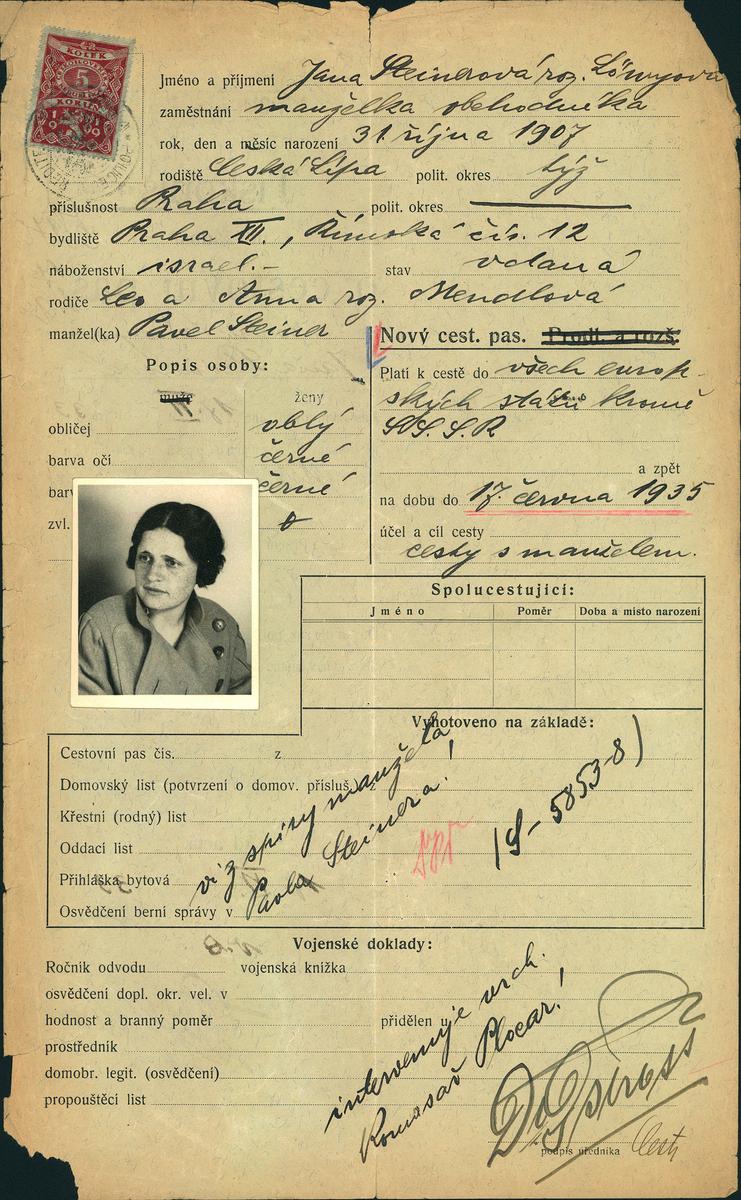 KOLEK
5
KORUN
1919
Jméno a příjmení Jana Steinerová roz. Löwyová
zaměstnání manželka obchodníka
rok, den a měsíc narození 31. října 1907
rodiště Česká Lípa polit. okres týž
příslušnost Praha polit. okres
bydliště Praha XII., Římská čís. 12
náboženství israel.- stav vdaná
rodiče Leo a Anna roz. Mendlová
manžel(ka) Pavel Steiner
Nový cest. pas. Prodl. a rozš.
Popis osoby:
Platí k cestě do všech evrop-
muže ženy
ských států kromě
obličej oblý
S.S.S.R
barva očí černé
a zpět
barv černé
na dobu do 17. června 1935
zvl. 0
účel a cíl cesty
cesty s manželem.
Spolucestující:
Jméno Poměr Doba a místo narození
Vyhotoveno na základě:
Cestovní pas čís. z
Domovský list (potvrzení o domov. přísluš.
Křestní (rodný) list
Oddací list
Přihláška bytová
Osvědčení berní správy v
viz spisy manžela
Pavla Steinera!
(S-5853-8)
Vojenské doklady:
Ročník odvodu vojenská knížka
osvědčení dopl. okr. vel. v
hodnost a branný poměr přidělen u
prostředník
domobr. legit. (osvědčení)
propouštěcí list
intervenuje vrch.
Komisař Plocar!
podpis úředníka